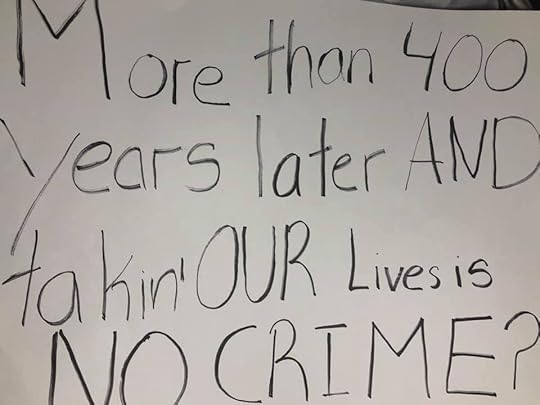 More than 400
Years later AND
takin' OUR Lives is
NO CRIME?